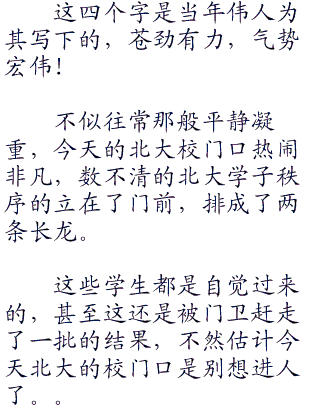 这四个字是当年伟人为
其写下的，苍劲有力，气势
宏伟！
不似往常那般平静凝
重，今天的北大校门口热闹
非凡，数不清的北大学子秩
序的立在了门前，排成了两
条长龙。
这些学生都是自觉过来
的，甚至这还是被门卫赶走
了一批的结果，不然估计今
天北大的校门口是别想进人
了。。